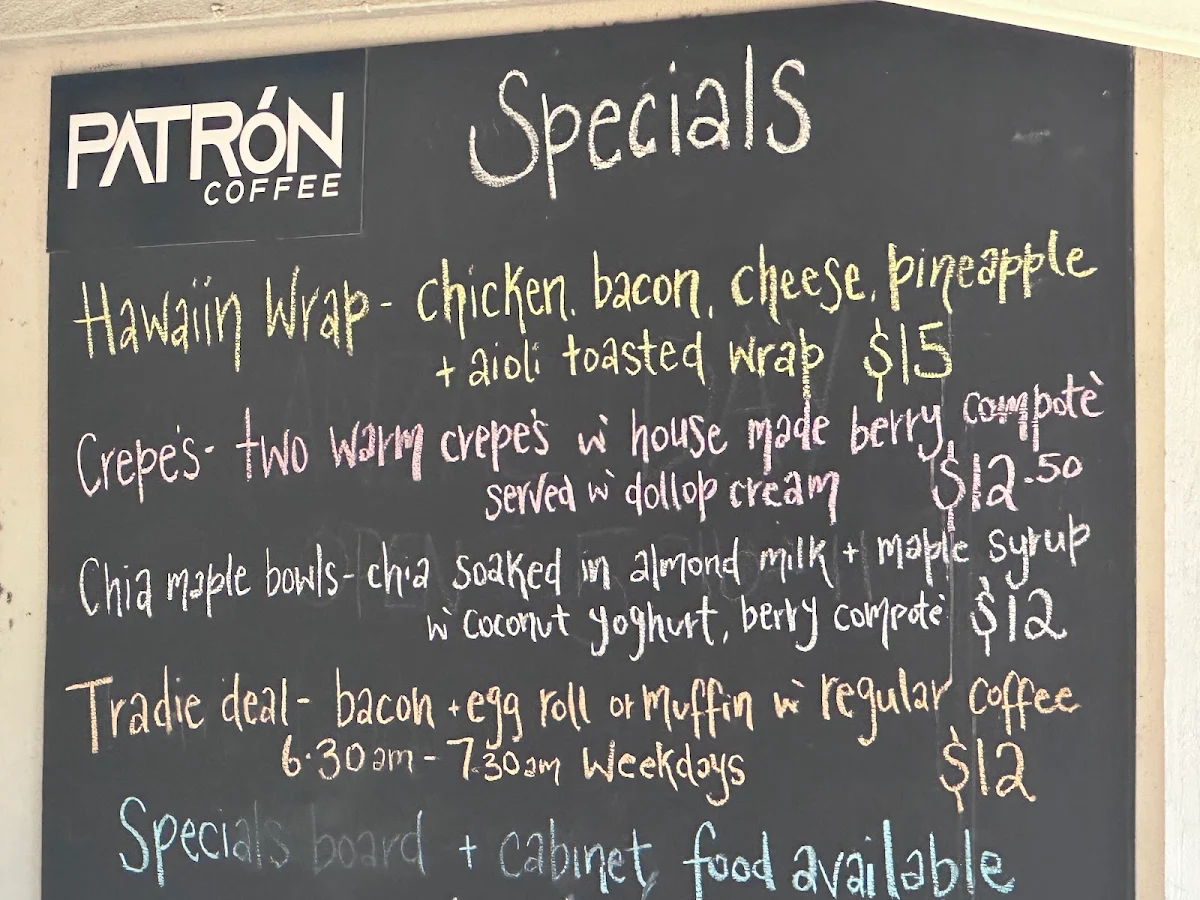 PATRÓN
COFFEE
Specials
Hawaiin Wrap - chicken, bacon, cheese, pineapple
+ aioli toasted wrap $15
Crepe's - two warm crepe's w' house made berry compotè
served w' dollop cream $12.50
Chia maple bowls - chia soaked in almond milk + maple syrup
w' coconut yoghurt, berry compotè $12
Tradie deal - bacon + egg roll or muffin w' regular coffee
6.30am - 7.30am Weekdays $12
Specials board + cabinet food available